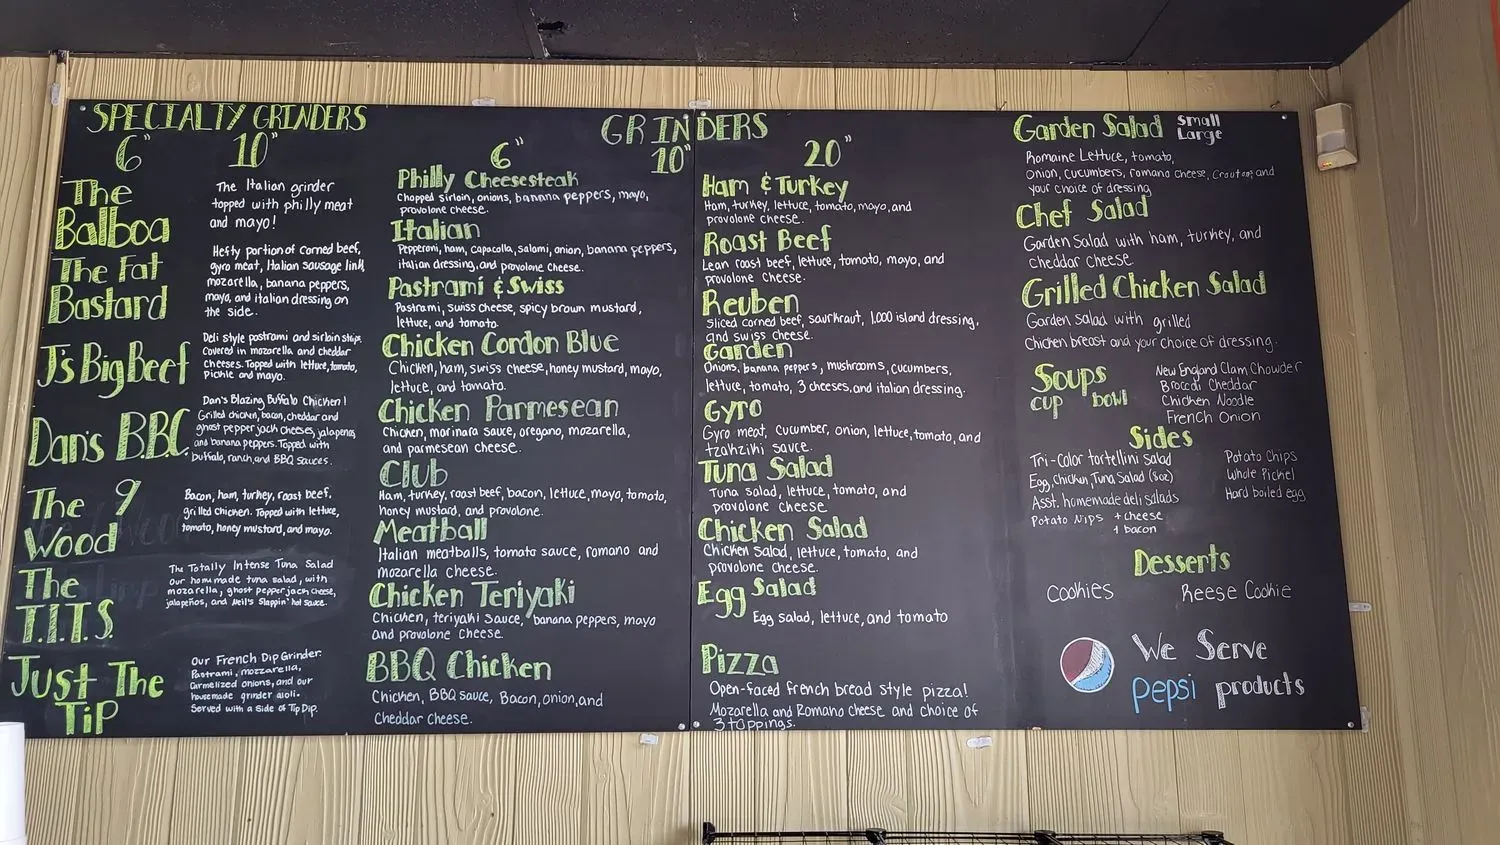 SPECIALTY GRINDERS
6" 10"
The
Balboa
The Italian grinder
topped with philly meat
and mayo!
The Fat
Bastard
Hefty portion of corned beef,
gyro meat, Italian sausage link,
mozarella, banana peppers,
mayo, and italian dressing on
the side.
J's Big Beef
Deli style pastrami and sirloin strips
Covered in mozarella and cheddar
Cheeses. Topped with lettuce, tomato,
Pickle and mayo.
Dan's B.B.C.
Dan's Blazing Buffalo Chicken!
Grilled chicken, bacon, cheddar and
ghost pepper jack cheeses, jalapenos,
and banana peppers. Topped with
buffalo, ranch, and BBQ sauces.
The 9
Wood
Bacon, ham, turkey, roast beef,
grilled chicken. Topped with lettuce,
tomato, honey mustard, and mayo.
The
T.I.T.S.
The Totally Intense Tuna Salad
Our homemade tuna salad, with
mozarella, ghost pepper jack cheese,
jalapeños, and Neil's Slappin' hot sauce.
Just The
Tip
Our French Dip Grinder.
Pastrami, mozzarella,
Carmelized onions, and our
housemade grinder aioli.
Served with a side of Tip Dip.
GRINDERS
6" 10" 20"
Philly Cheesesteak
Chopped sirloin, onions, banana peppers, mayo,
provolone cheese.
Italian
Pepperoni, ham, capacolla, salami, onion, banana peppers,
italian dressing, and provolone cheese.
Pastrami & Swiss
Pastrami, swiss cheese, spicy brown mustard,
lettuce, and tomato.
Chicken Cordon Blue
Chicken, ham, swiss cheese, honey mustard, mayo,
lettuce, and tomato.
Chicken Parmesean
Chicken, marinara sauce, oregano, mozarella,
and parmesean cheese.
Club
Ham, turkey, roast beef, bacon, lettuce, mayo, tomato,
honey mustard, and provolone.
Meatball
Italian meatballs, tomato sauce, romano and
mozarella cheese.
Chicken Teriyaki
Chicken, teriyaki sauce, banana peppers, mayo
and provolone cheese.
BBQ Chicken
Chicken, BBQ sauce, Bacon, onion, and
Cheddar cheese.
Ham & Turkey
Ham, turkey, lettuce, tomato, mayo, and
provolone cheese.
Roast Beef
Lean roast beef, lettuce, tomato, mayo, and
provolone cheese.
Reuben
Sliced corned beef, saurkraut, 1,000 island dressing,
and swiss cheese.
Garden
Onions, banana peppers, mushrooms, cucumbers,
lettuce, tomato, 3 cheeses, and italian dressing.
Gyro
Gyro meat, cucumber, onion, lettuce, tomato, and
tzakziki sauce.
Tuna Salad
Tuna salad, lettuce, tomato, and
provolone cheese
Chicken Salad
Chicken salad, lettuce, tomato, and
provolone cheese.
Egg Salad
Egg salad, lettuce, and tomato
Pizza
Open-faced french bread style pizza!
Mozarella and Romano cheese and choice of
3 toppings.
Garden Salad Small
Large
Romaine Lettuce, tomato,
onion, cucumbers, romano cheese, Croutons, and
your choice of dressing
Chef Salad
Garden Salad with ham, turkey, and
cheddar cheese
Grilled Chicken Salad
Garden Salad with grilled
Chicken breast and your choice of dressing.
Soups
cup bowl
New England Clam Chowder
Broccoli Cheddar
Chicken Noodle
French Onion
Sides
Tri-Color tortellini Salad
Egg, Chicken, Tuna Salad (8oz)
Asst. homemade deli salads
Potato Nips + cheese
+ bacon
Potato Chips
Whole Pickel
Hard boiled egg
Desserts
Cookies Reese Cookie
We Serve
pepsi products